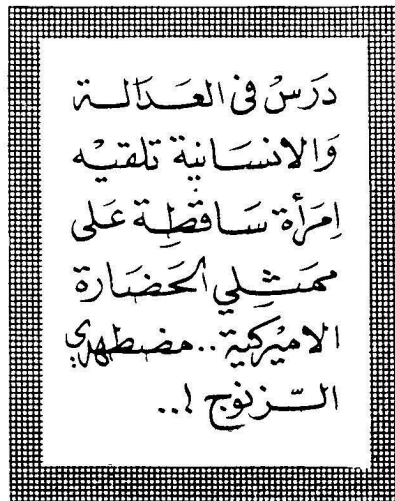 دَرَسْ فى العَـدَالـة
وَالانسَـانية تلقيـه
اِمرَأة سَـاقطِـة عَـلى
ممـثِـلي الحَضَـارة
الاميْركيّة..مضطهدي
الـزّنوج !..